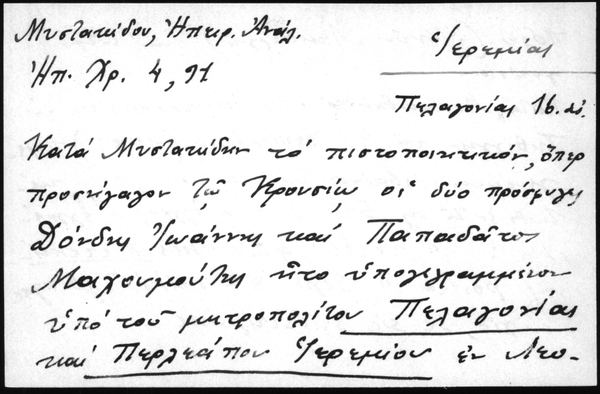 Μυστακίδου, Ἠπειρ. Ἀνάλ.
Ἠπ. Χρ. 4, 91
Ἱερεμίας
Πελαγονίας 16. αἰ.
Κατά Μυστακίδην τό πιστοποιητικόν, ὅπερ
προσήγαγον τῷ Κρουσίῳ οἱ δύο πρόσφυγες
Δόνδης Ἰωάννης καί Παπαδᾶτος
Μαχουμούζης ἦτο ὑπογεγραμμένον
ὑπό τοῦ μητροπολίτου Πελαγονίας
καί Περλεάπου Ἱερεμίου ἐν Λευ-